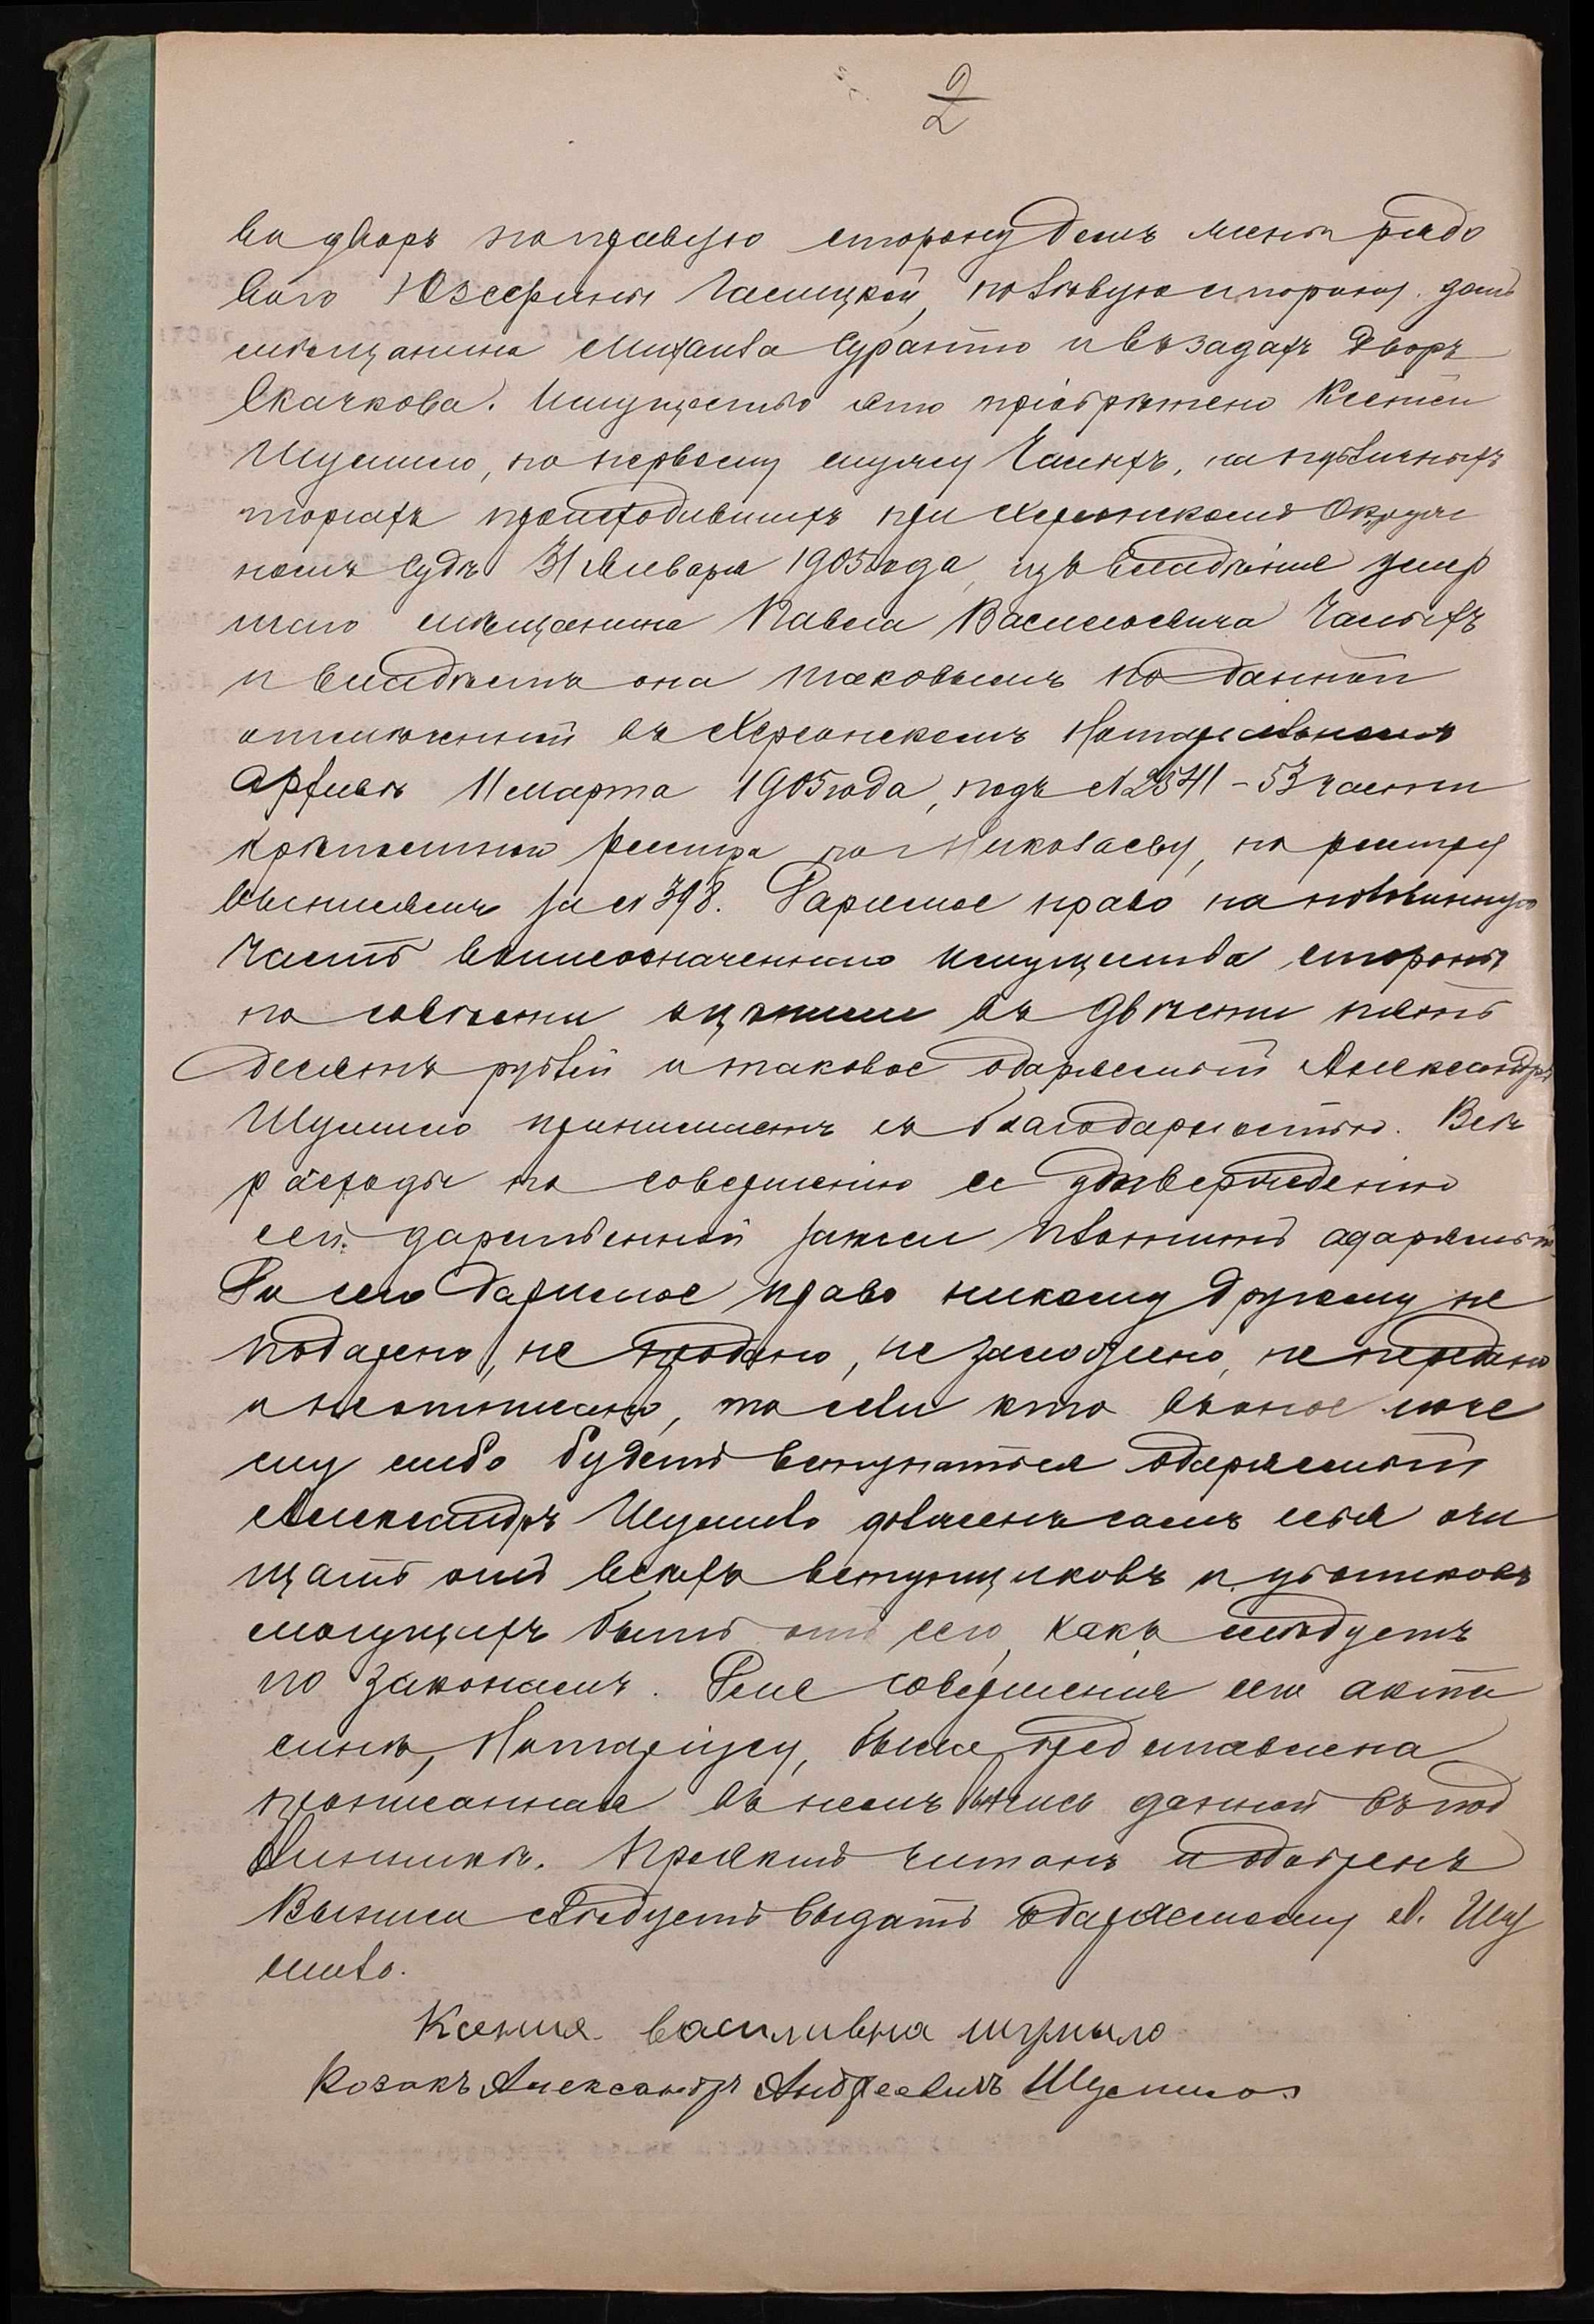 2/2
въ дворъ по правую сторону домъ жены рядо
вого Юзефины Гамецкой, по лѣвую сторону домъ
мѣщанина Михаила Суранто и въ задахъ дворъ
Скачкова. Имущество это пріобрѣтено Ксеніей
Шумило, по первому мужу Чалыхъ, на публичныхъ
торгахъ происходившихъ при Херсонскомъ Окруж
номъ Судѣ 31 Января 1905 года, изъ владѣнія умер
шаго мѣщанина Павла Васильевича Чалыхъ
и владѣетъ она таковымъ по данной
отмѣченной въ Херсонскомъ Нотаріальномъ
Архивѣ 11 марта 1905 года, подъ № 2541 - 53 части
крѣпостной реестра по Николаеву, по реестру
выписемъ за № 398. Даримое право на половинную
часть вышеозначеннаго имущества стороны
по совѣсти оцѣнили въ двѣсти пять
десятъ рублей и таковое одаряемый Александръ
Шумило принимаетъ съ благодарностью. Всѣ
расходы по совершенію и утвержденію
сей дарственной записи платитъ одаряемый
До сего даримое право никому другому не
подарено, не продано, не заложено, не передано
и не отписано, то если кто въ оное поче
му либо будетъ вступаться одаряемый
Александръ Шумило долженъ самъ себя очи
щать отъ всѣхъ вступщиковъ и убытковъ
могущихъ быть отъ сего, какъ слѣдуетъ
по законамъ. Для совершенія сего акта
мнѣ, Нотаріусу, была представлена
прописанная въ немъ выпись данной въ под
линникѣ. Проектъ читанъ и одобренъ
Выпись слѣдуетъ выдать одаряемому А. Шу
мило.
Ксения василивна шумыло
Козакъ Александръ Андреевичъ Шумило